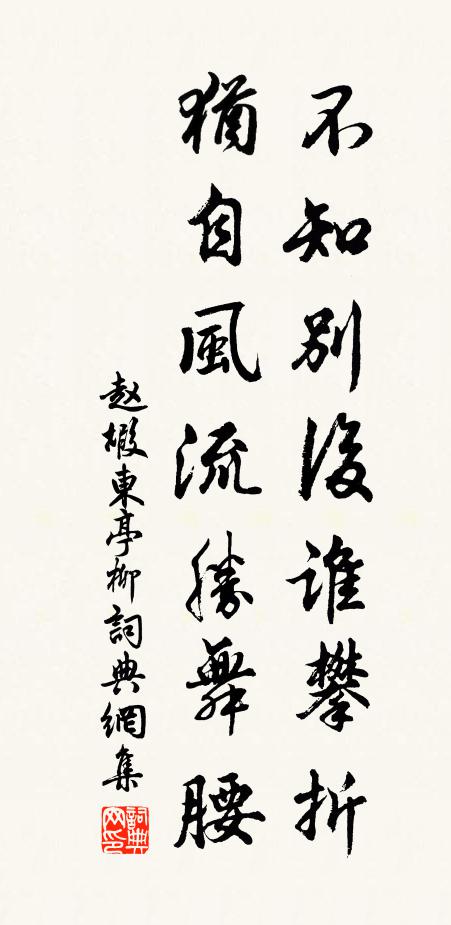 不知別後誰攀折
猶自風流勝舞腰
赵嘏東亭柳詞典網集
詞典
网印